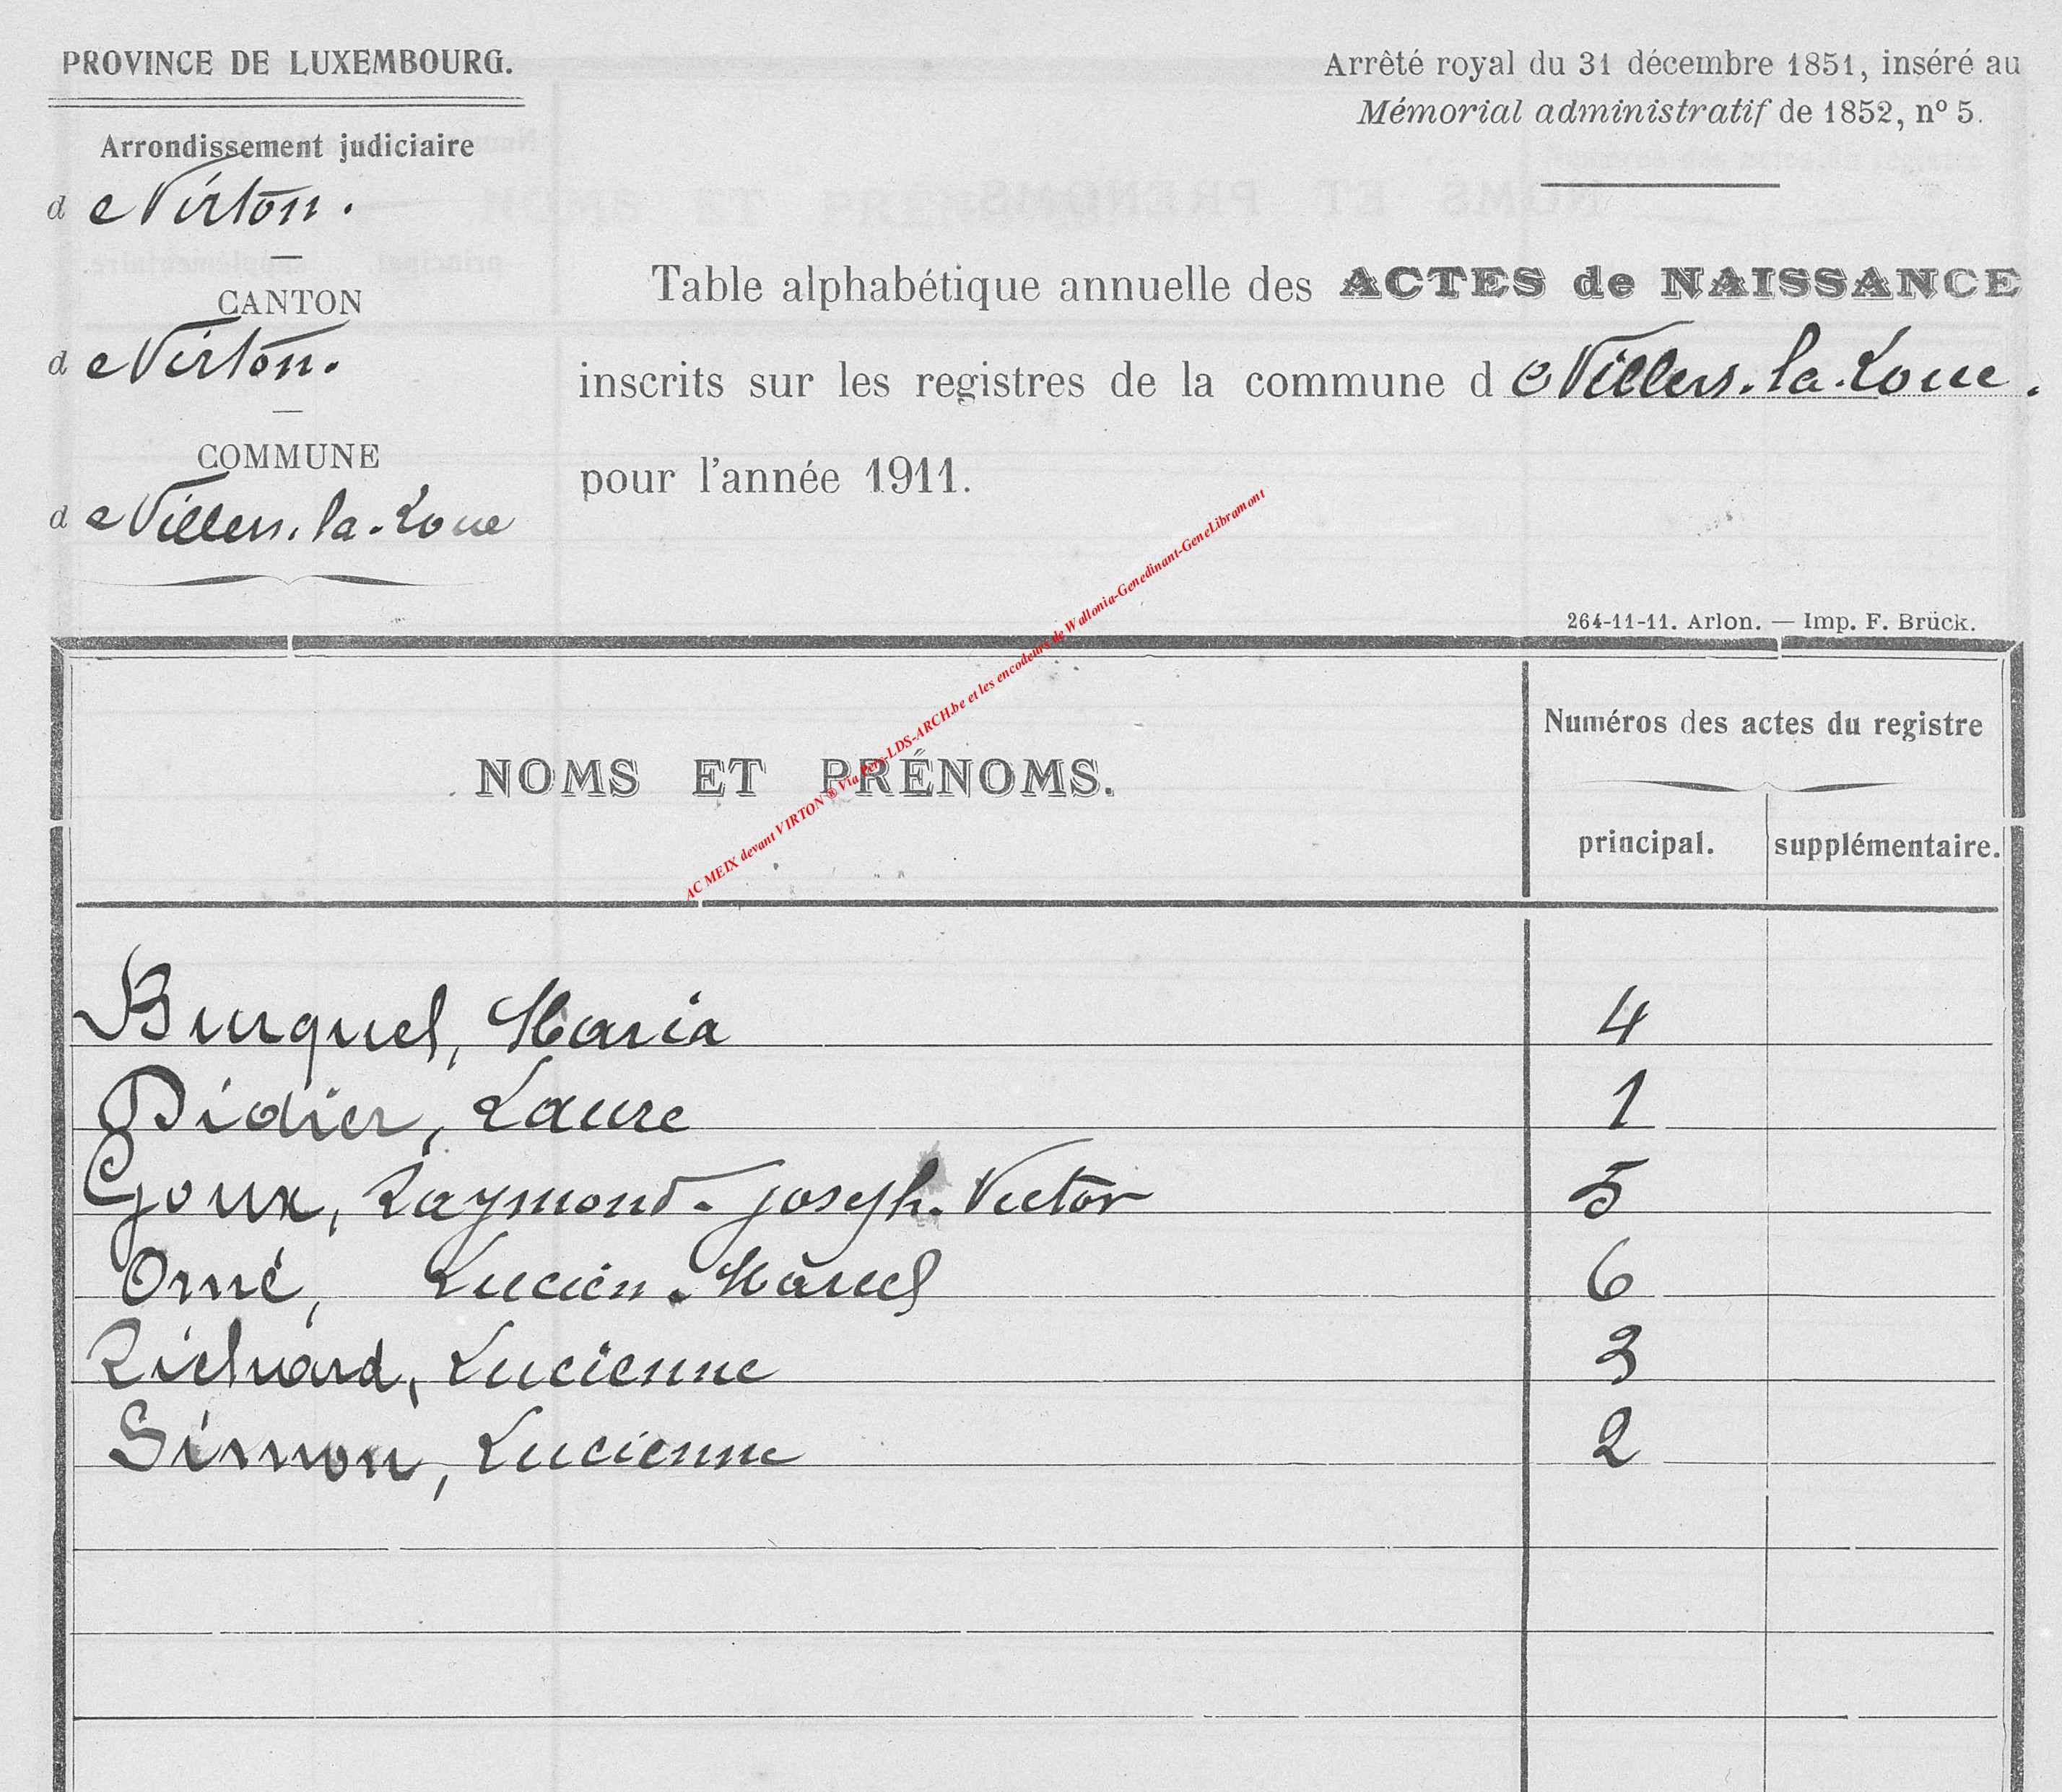 PROVINCE DE LUXEMBOURG.
Arrondissement judiciaire
de Virton.
CANTON
de Virton.
COMMUNE
de Villers-la-Loue
Arrêté royal du 31 décembre 1851, inséré au
Mémorial administratif de 1852, nº 5.
Table alphabétique annuelle des ACTES de NAISSANCE
inscrits sur les registres de la commune de Villers-la-Loue.
pour l'année 1911.
264-11-11. Arlon. — Imp. F. Brück.
AC MEIX devant VIRTON ® Via Pers-LDS-ARCH.be et les encodeurs de Wallonia-Genedinant-GeneLibramont
NOMS ET PRÉNOMS.
Numéros des actes du registre
principal. supplémentaire.
Burquel, Maria 4
Didier, Laure 1
Goux, Raymond-Joseph-Victor 5
Orné, Lucien-Marcel 6
Richard, Lucienne 3
Simon, Lucienne 2